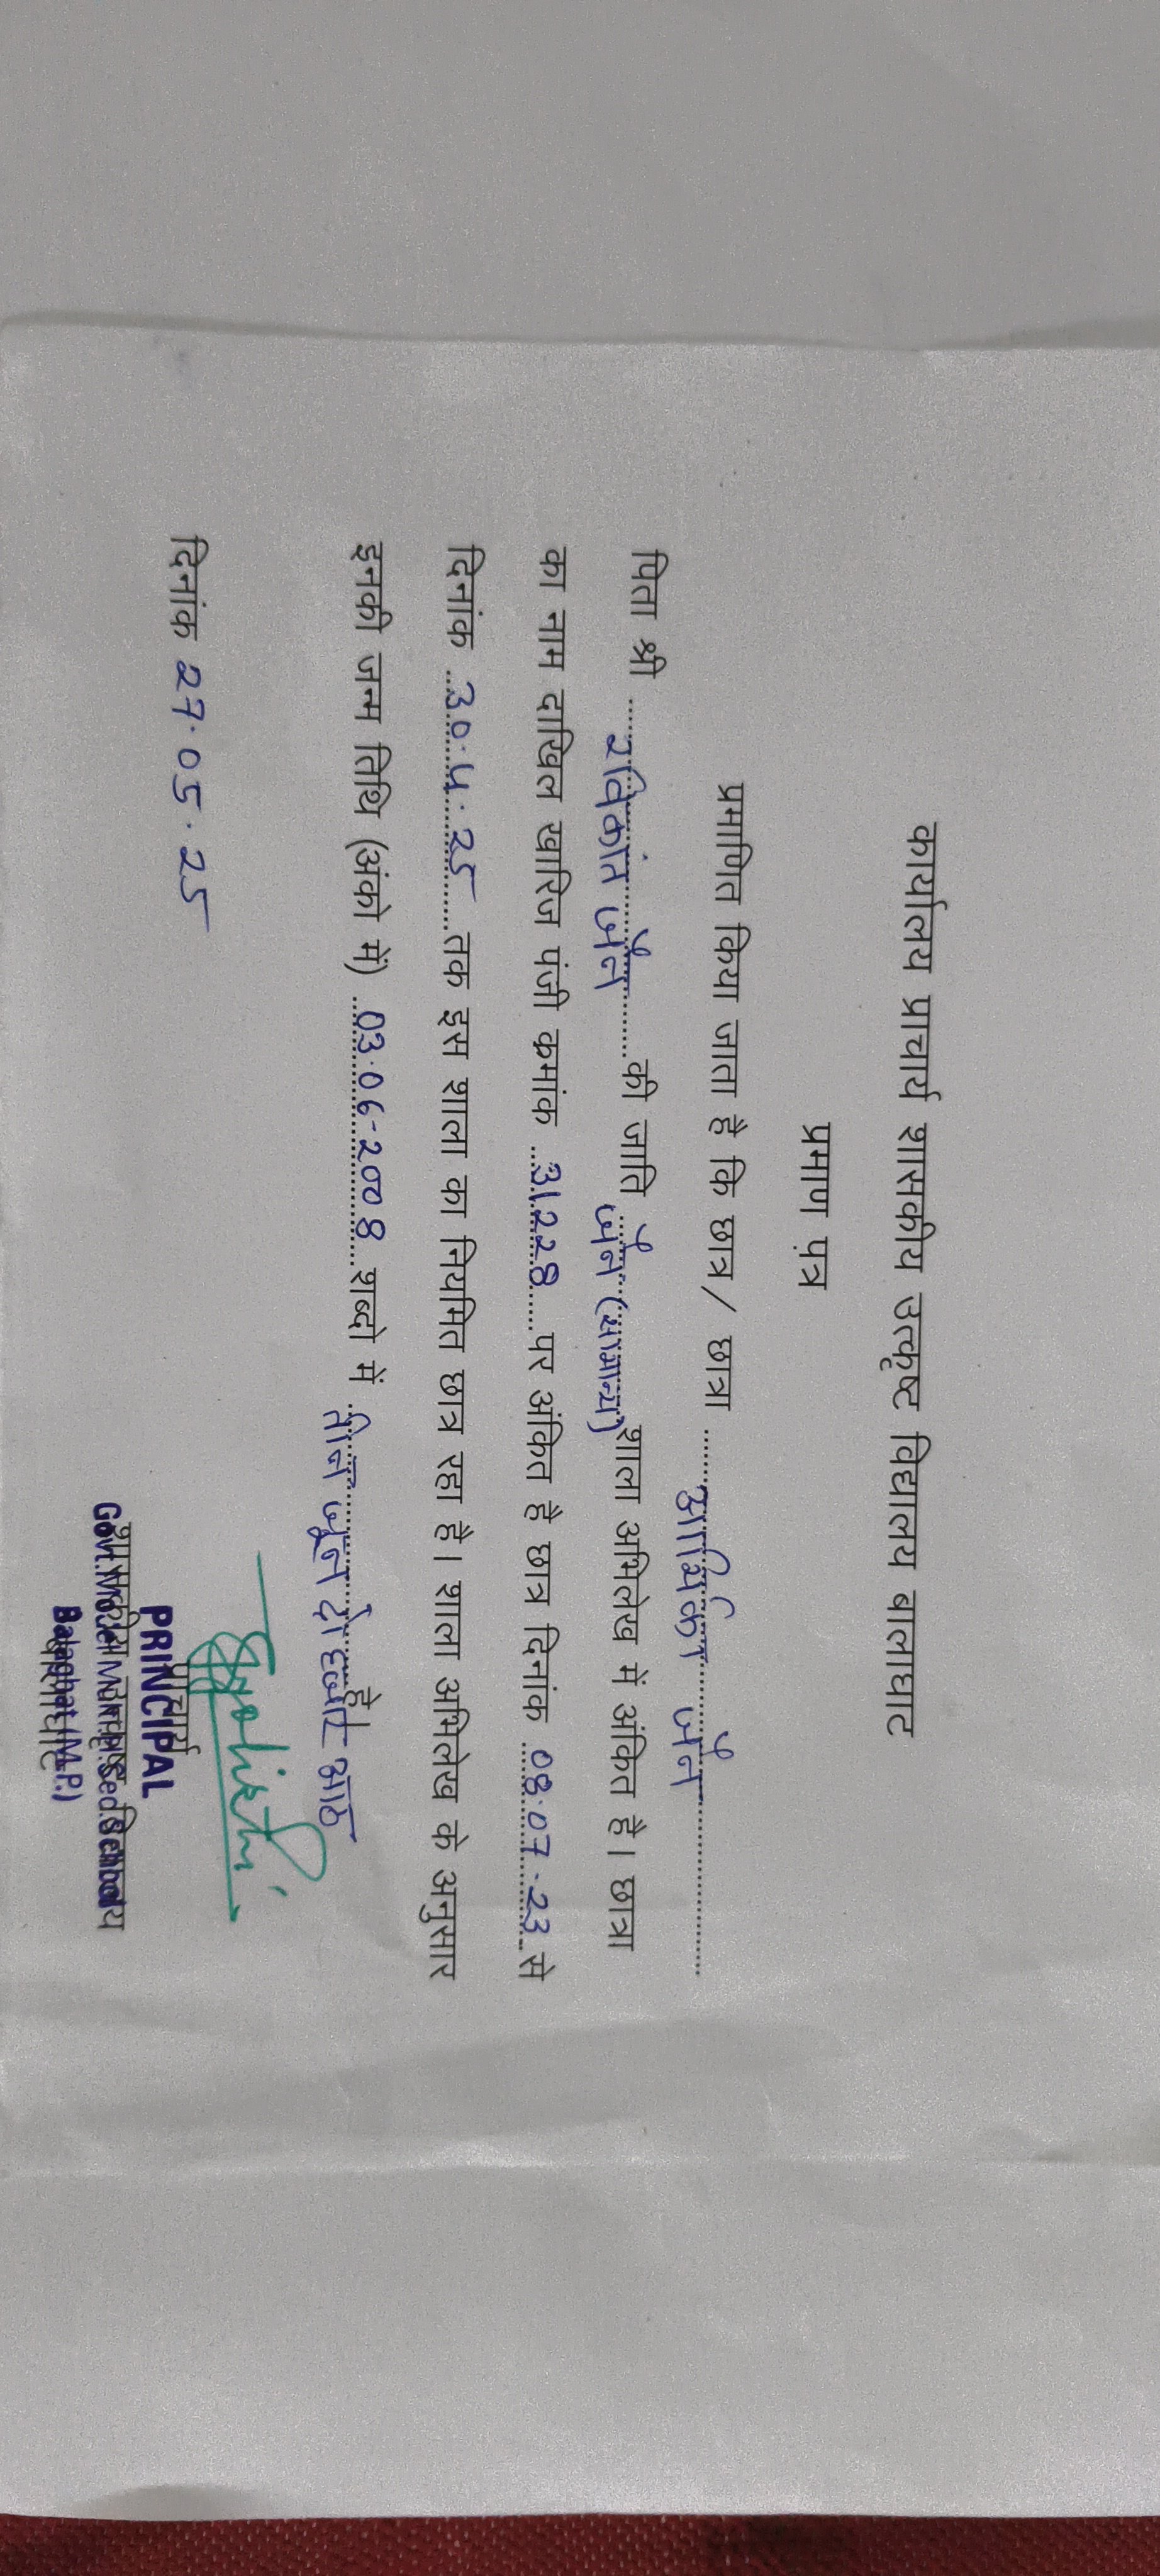 कार्यालय प्राचार्य शासकीय उत्कृष्ट विद्यालय बालाघाट
प्रमाण पत्र
प्रमाणित किया जाता है कि छात्र/ छात्रा ........ आर्यिका जैन ........
पिता श्री ..... रविकांत जैन ..... की जाति जैन (सामान्य) शाला अभिलेख में अंकित है। छात्रा
का नाम दाखिल खारिज पंजी क्रमांक ... 31228 ..... पर अंकित है छात्र दिनांक ... 08.07.23 ... से
दिनांक ... 30.4.25 ... तक इस शाला का नियमित छात्र रहा है। शाला अभिलेख के अनुसार
इनकी जन्म तिथि (अंको में) ... 03.06-2008 ... शब्दो में तीन जून दो हजार आठ है।
दिनांक 27.05.25
प्राचार्य
PRINCIPAL
शासकीय उत्कृष्ट विद्यालय
Govt. Model Hr. Sec. School
बालाघाट
Balaghat (M.P.)